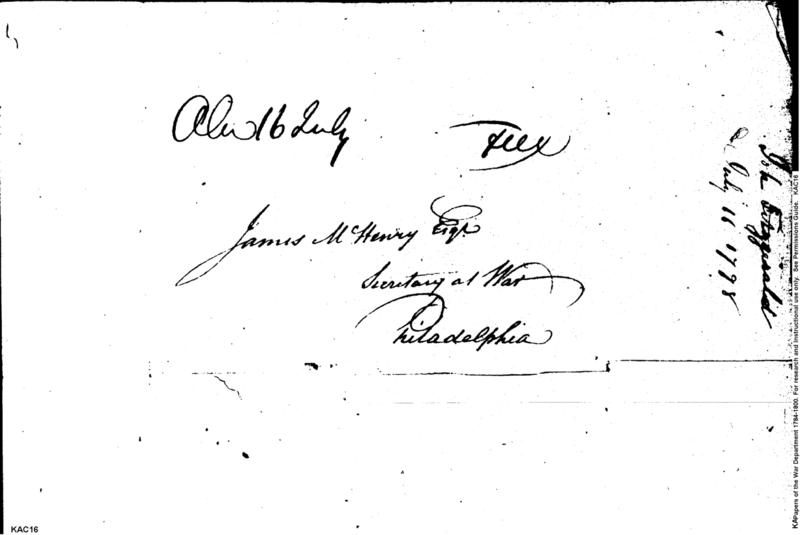 Alex 16 July
Free
James McHenry Esqr
Secretary at War
Philadelphia
Jno Fitzgerald
July 11 1798
KAC16
KAPapers of the War Department 1784-1800. For research and instructional use only. See Permissions Guide. KAC16